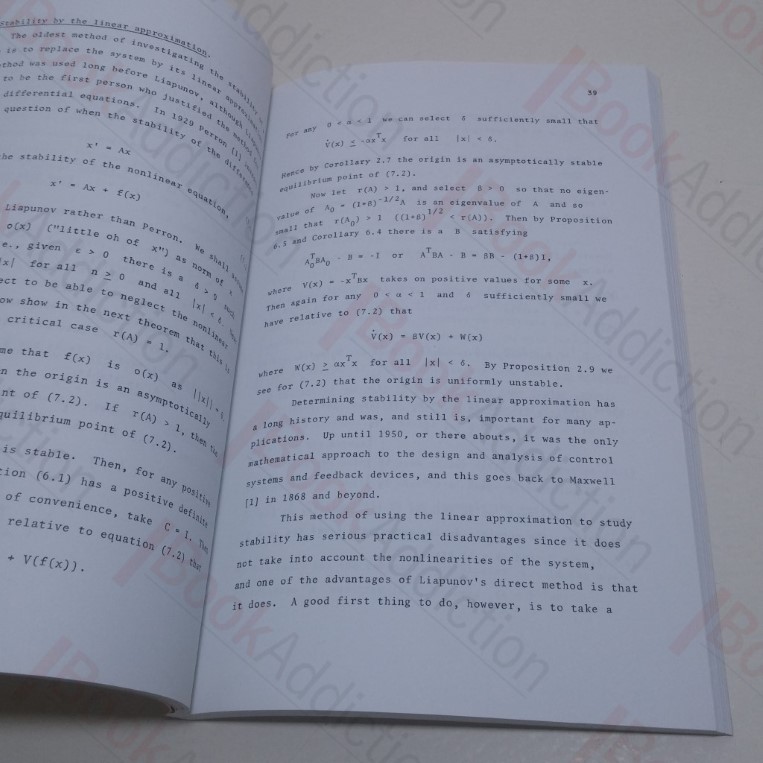 stability by the linear approximation.
The oldest method of investigating the stability
is to replace the system by its linear
was used long before Liapunov, although
to be the first person who justified the method
differential equations. In 1929 Perron [1]
question of when the stability of the
x' = Ax
the stability of the nonlinear equation,
x' = Ax + f(x)
Liapunov rather than Perron. We shall
o(x) ("little oh of x") as norm of
given ε > 0 there is a δ > 0 such
for all n ≥ 0 and all |x| < δ.
to be able to neglect the nonlinear
show in the next theorem that this is
critical case r(A) = 1.
that f(x) is o(x) as
the origin is an asymptotically
of (7.2). If r(A) > 1, then the
equilibrium point of (7.2).
is stable. Then, for any positive
(6.1) has a positive definite
of convenience, take C = I. Then
relative to equation (7.2) that
+ V(f(x)).
39
For any 0 < α < 1 we can select δ sufficiently small that
V̇(x) ≤ -αxᵀx for all |x| < δ.
Hence by Corollary 2.7 the origin is an asymptotically stable
equilibrium point of (7.2).
Now let r(A) > 1, and select β > 0 so that no eigen-
value of A₀ = (1+β)^-1/2 A is an eigenvalue of A and so
small that r(A₀) > 1 ((1+β)^1/2 < r(A)). Then by Proposition
6.3 and Corollary 6.4 there is a B satisfying
A₀ᵀBA₀ - B = -I or AᵀBA - B = βB - (1+β)I,
where V(x) = -xᵀBx takes on positive values for some x.
Then again for any 0 < α < 1 and δ sufficiently small we
have relative to (7.2) that
V̇(x) = βV(x) + W(x)
where W(x) ≥ αxᵀx for all |x| < δ. By Proposition 2.9 we
see for (7.2) that the origin is uniformly unstable.
Determining stability by the linear approximation has
a long history and was, and still is, important for many ap-
plications. Up until 1950, or there abouts, it was the only
mathematical approach to the design and analysis of control
systems and feedback devices, and this goes back to Maxwell
[1] in 1868 and beyond.
This method of using the linear approximation to study
stability has serious practical disadvantages since it does
not take into account the nonlinearities of the system,
and one of the advantages of Liapunov's direct method is that
it does. A good first thing to do, however, is to take a
BookAddiction